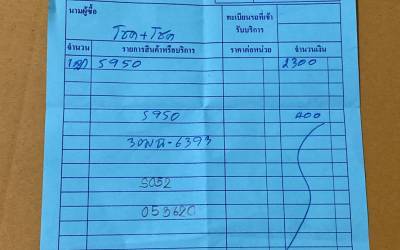 นามผู้ซื้อ
โชค+โชค
ทะเบียนรถที่เข้า
รับบริการ
จำนวน รายการสินค้าหรือบริการ ราคาต่อหน่วย จำนวนเงิน
5950 2300
5950 400
6393
S052
053620